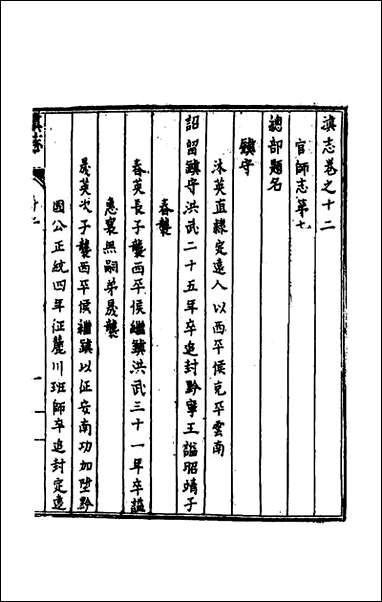 滇志卷之十二
官師志第七
總部題名
鎮守
沐英直隸定遠人以西平侯克平雲南
詔留鎮守洪武二十五年卒追封黔寧王謚昭靖子
春襲
春英長子襲西平侯繼鎮洪武三十一年卒謚
惠襄無嗣弟晟襲
晟英次子襲西平侯繼鎮以征安南功加陞黔
國公正統四年征麓川班師卒追封定遠
滇志